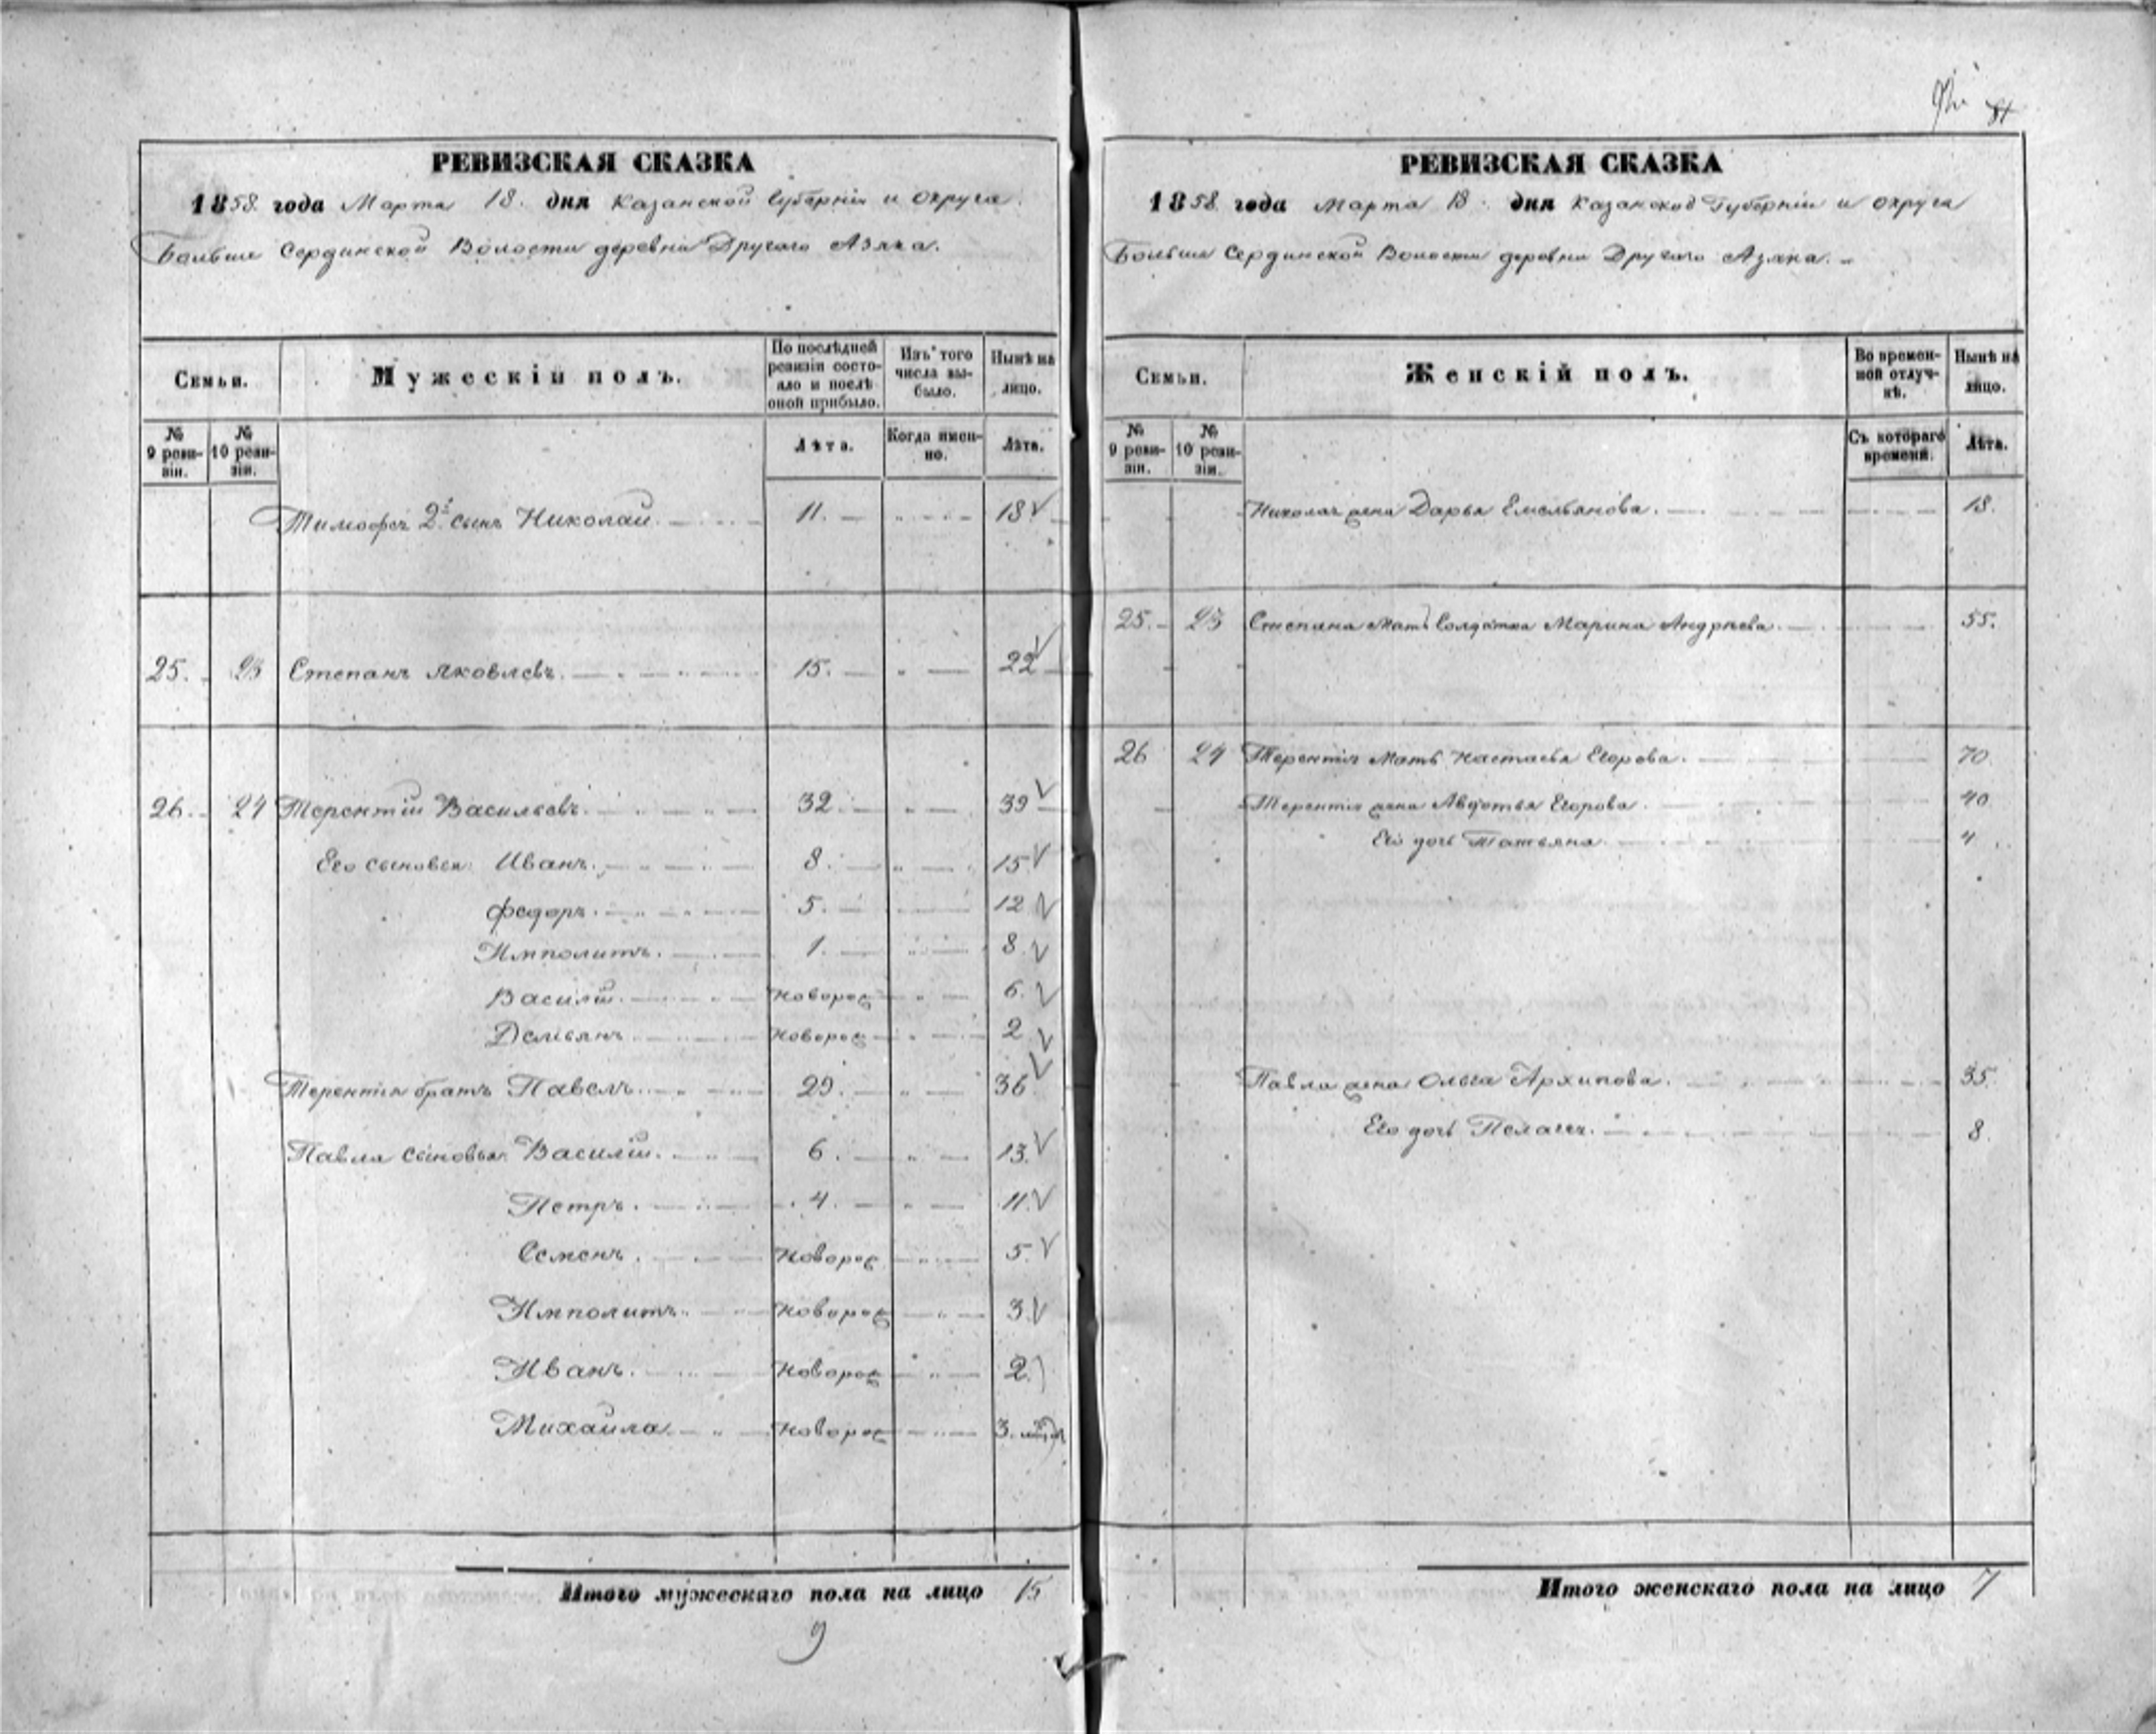 РЕВИЗСКАЯ СКАЗКА
1858 года Марта 18. дня Казанской Губерніи и округа
Больше Сердинской Волости деревни Другаго Азяка.
Семьи.
Мужескій полъ.
По послѣдней ревизіи состояло и послѣ оной прибыло.
Изъ того числа выбыло.
Нынѣ на лицо.
№ 9 ревизіи.
№ 10 ревизіи.
Лѣта.
Когда именно.
Лѣта.
Тимофея 2й сынъ Николай. 11. 18
25. 23 Степанъ Яковлевъ. 15. 22
26. 24 Терентій Васильевъ. 32. 39
Его сыновья: Иванъ. 8. 15
Федоръ. 5. 12
Имполитъ. 1. 8.
Василій. новорож 6.
Демьянъ. новорож 2
Терентія братъ Павелъ. 29. 36
Павла сыновья Василій. 6. 13.
Петръ. 4. 11.
Семенъ. новорож 5.
Имполитъ. новорож 3.
Иванъ. новорож 2.
Михайла новорож 3.
Итого мужескаго пола на лицо 15
9
РЕВИЗСКАЯ СКАЗКА
1858 года Марта 18. дня Казанской Губерніи и округа
Больше Сердинской Волости деревни Другаго Азяка.
Семьи.
Женскій полъ.
Во временной отлучкѣ.
Нынѣ на лицо.
№ 9 ревизіи.
№ 10 ревизіи.
Съ котораго времени.
Лѣта.
Николая жена Дарья Емельянова. 18.
25. 23 Степана Мать Солдатка Марина Андреева. 55.
26 24 Терентія Мать Настасья Егорова. 70.
Терентія жена Авдотья Егорова. 40
Его дочь Татьяна. 4.
Павла жена Ольга Архипова. 35.
Его дочь Пелагея. 8.
Итого женскаго пола на лицо 7